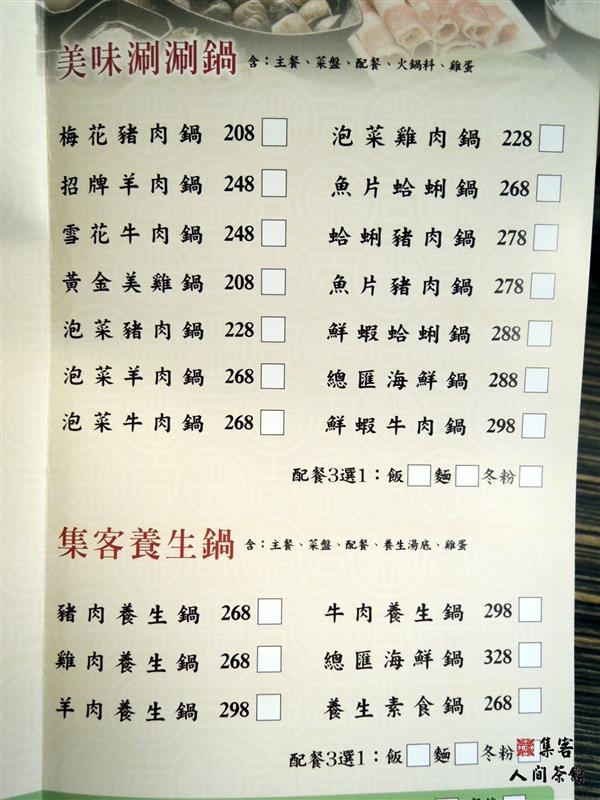 美味涮涮鍋 含：主餐、菜盤、配餐、火鍋料、雞蛋
梅花豬肉鍋 208 泡菜雞肉鍋 228
招牌羊肉鍋 248 魚片蛤蜊鍋 268
雪花牛肉鍋 248 蛤蜊豬肉鍋 278
黃金美雞鍋 208 魚片豬肉鍋 278
泡菜豬肉鍋 228 鮮蝦蛤蜊鍋 288
泡菜羊肉鍋 268 總匯海鮮鍋 288
泡菜牛肉鍋 268 鮮蝦牛肉鍋 298
配餐3選1：飯 麵 冬粉
集客養生鍋 含：主餐、菜盤、配餐、養生湯底、雞蛋
豬肉養生鍋 268 牛肉養生鍋 298
雞肉養生鍋 268 總匯海鮮鍋 328
羊肉養生鍋 298 養生素食鍋 268
配餐3選1：飯 麵 冬粉
集客
人间茶館